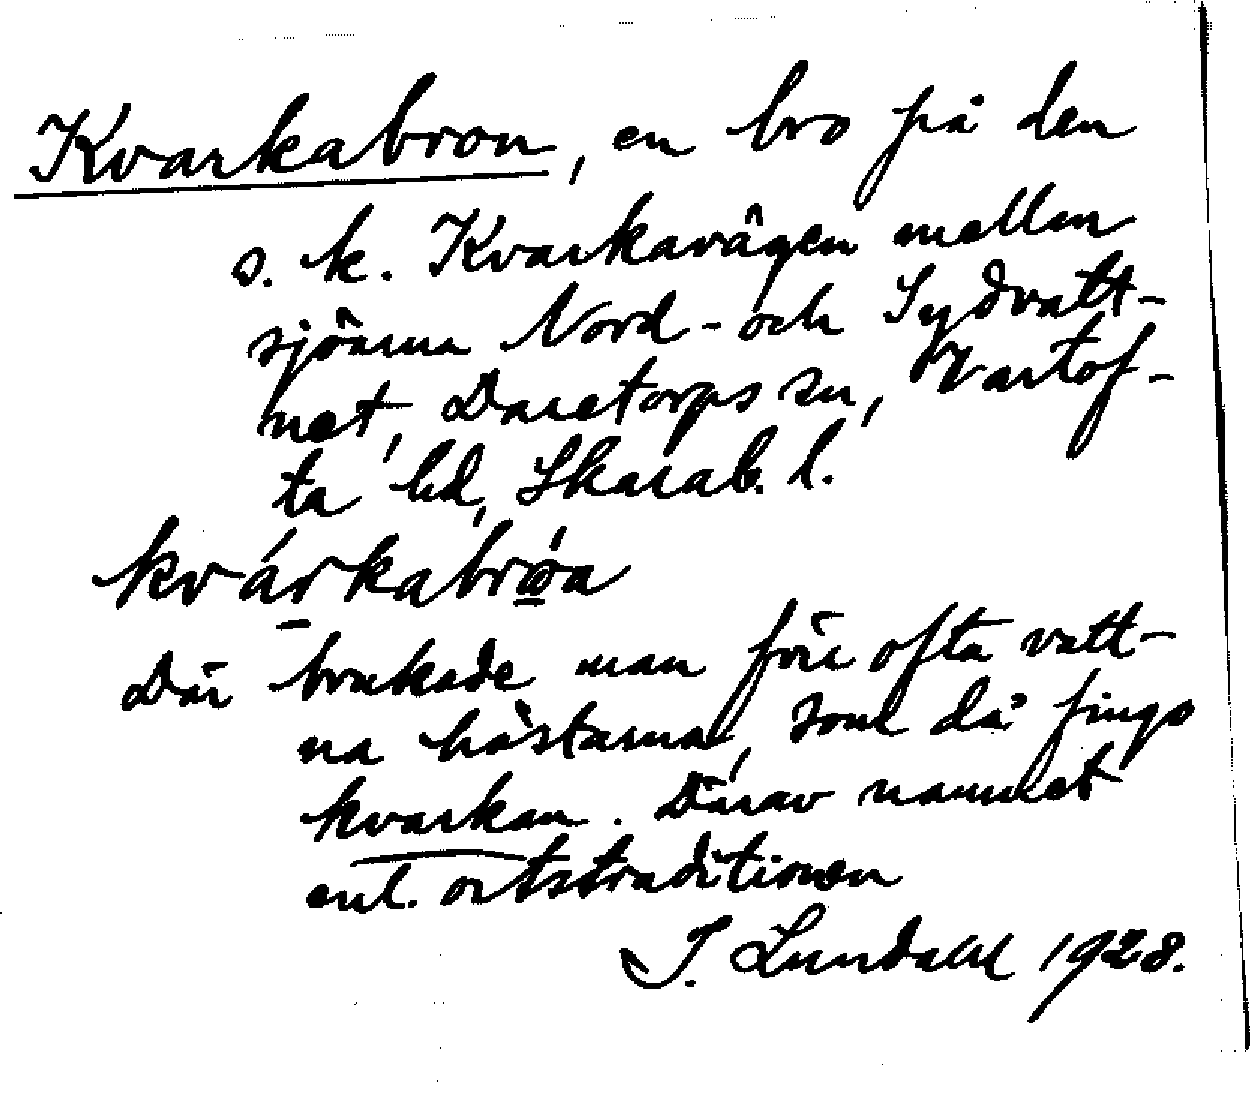 Kvarkabron, en bro på den
s. k. Kvarkavägen mellan
sjöarna Nord- och Sydvatt-
net, Daretorps sn, Vartof-
ta hd, Skarab. l.
kvárkabrǿa
Där brukade man förr ofta vatt-
na hästarna, som då fingo
kvarkan. Därav namnet
enl. ortstraditionen
I. Lundahl 1928.